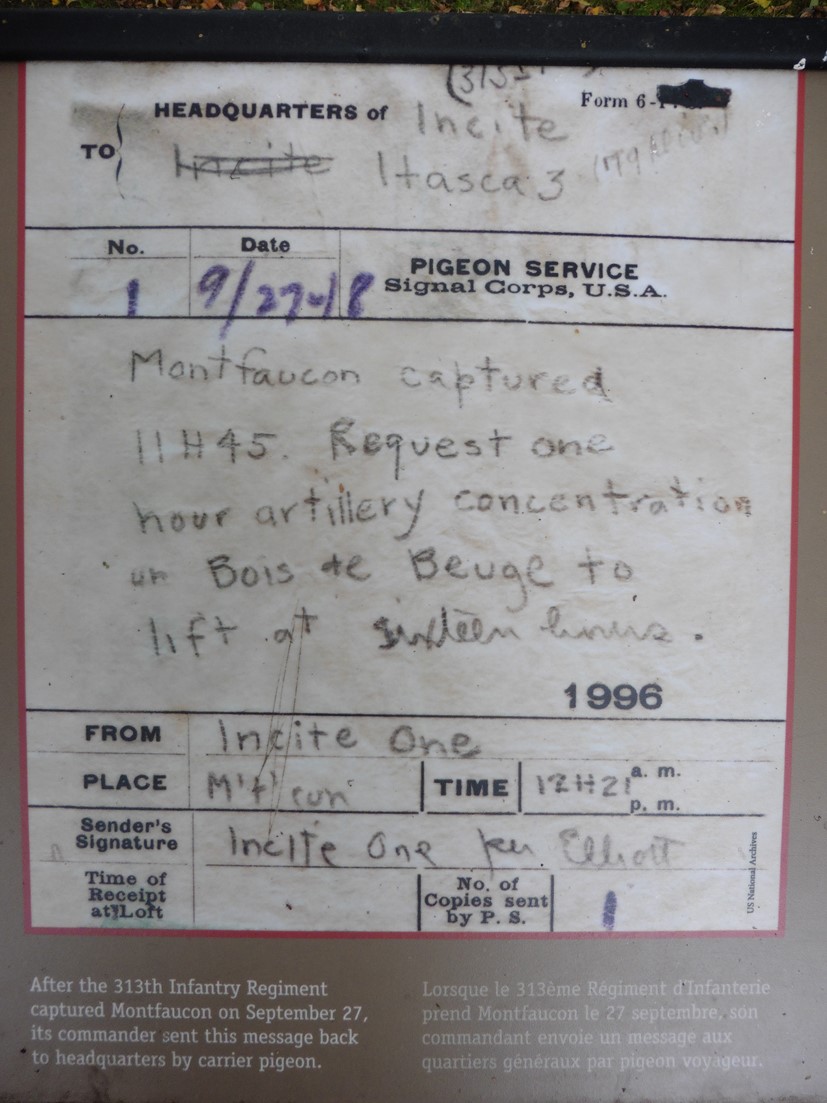 HEADQUARTERS of Incite
Form 6-
TO Incite Itasca 3
No. Date
1 9/27-18
PIGEON SERVICE
Signal Corps, U.S.A.
Montfaucon captured
11H45. Request one
hour artillery concentration
on Bois de Beuge to
lift at sixteen hours.
1996
FROM Incite One
PLACE TIME 12H21 a. m.
p. m.
Sender's
Signature Incite One per Elliott
Time of
Receipt
at Loft
No. of
Copies sent
by P. S. 1
US National Archives
After the 313th Infantry Regiment
captured Montfaucon on September 27,
its commander sent this message back
to headquarters by carrier pigeon.
Lorsque le 313ème Régiment d'Infanterie
prend Montfaucon le 27 septembre, son
commandant envoie un message aux
quartiers généraux par pigeon voyageur.